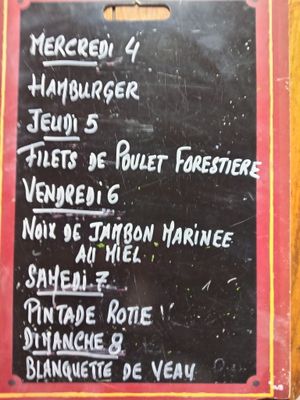 MERCREDI 4
HAMBURGER
JEUDI 5
FILETS DE POULET FORESTIERE
VENDREDI 6
NOIX DE JAMBON MARINEE
AU MIEL
SAMEDI 7
PINTADE ROTIE
DIMANCHE 8
BLANQUETTE DE VEAU